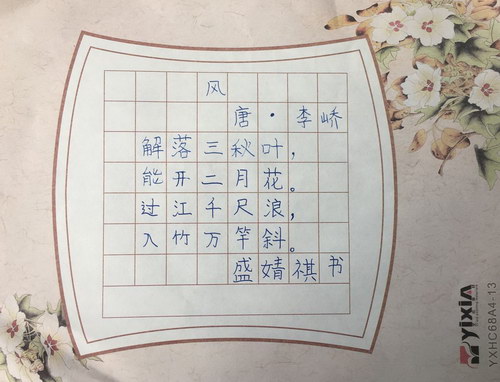 风
唐·李峤
解落三秋叶，
能开二月花。
过江千尺浪，
入竹万竿斜。
盛婧祺书
yixin
YXHC68A4-13